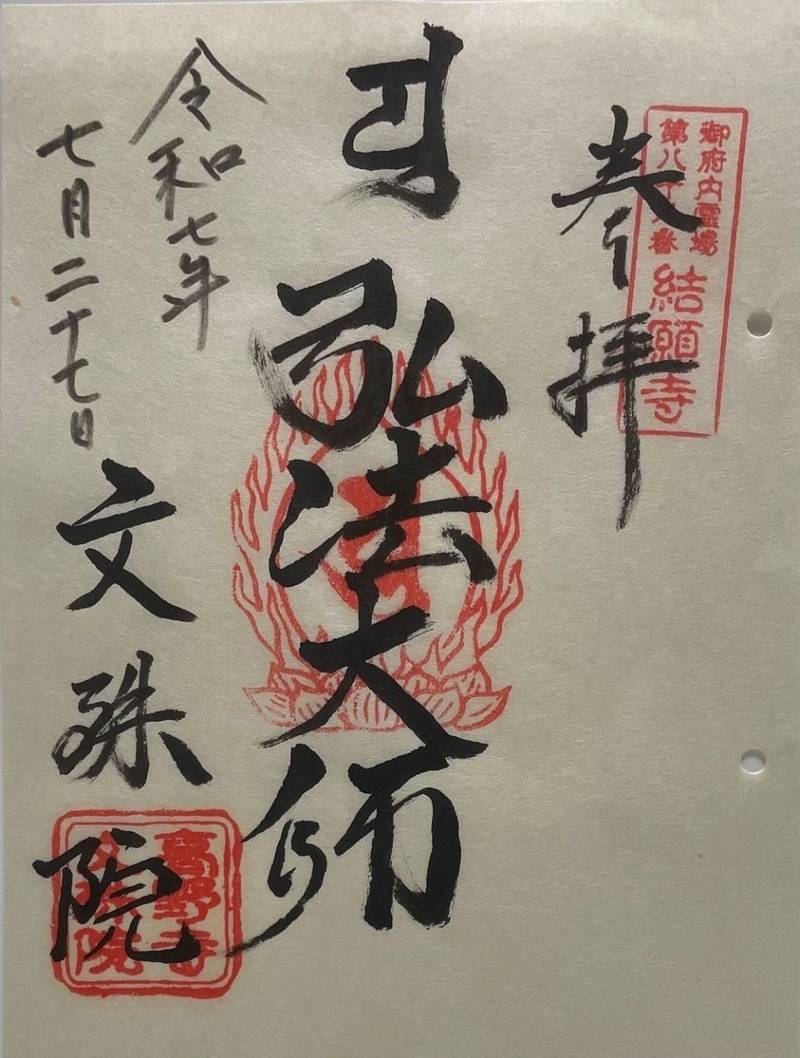 御府内霊場
第八十八番
結願寺
奉拝
弘法大師
令和七年
七月二十七日
文殊院
高野寺
文殊院